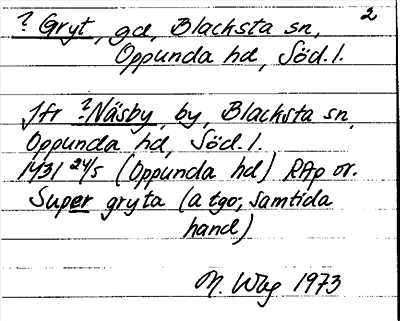 ? Gryt, gd, Blacksta sn, 2
Oppunda hd, Söd. l.
Jfr ? Näsby, by, Blacksta sn,
Oppunda hd, Söd. l.
1431 24/5 (Oppunda hd) RAp or.
Super gryta (a tgo; samtida
hand)
M. Wbg 1973